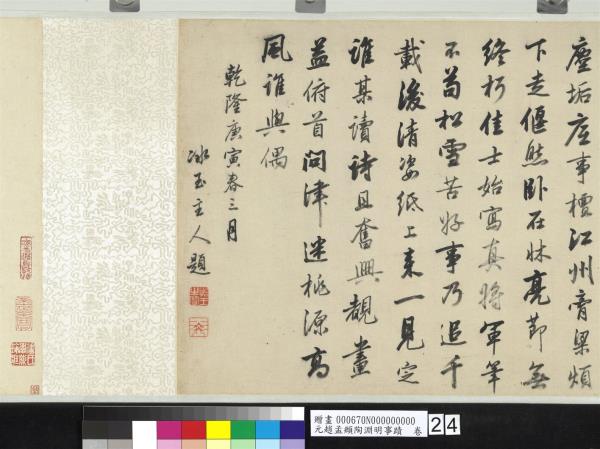 塵垢底事檀江州膏梁煩
下走偃然卧在牀亮節無
終朽佳士始寫真將軍筆
不苟松雪苦好事乃追千
載後清姿紙上来一見定
誰某讀詩且奮興觀畫
益俯首問津迷桃源高
風誰與偶
乾隆庚寅春三月
冰玉主人題
贈畫 000670N000000000
元趙孟頫陶淵明事蹟 卷
24